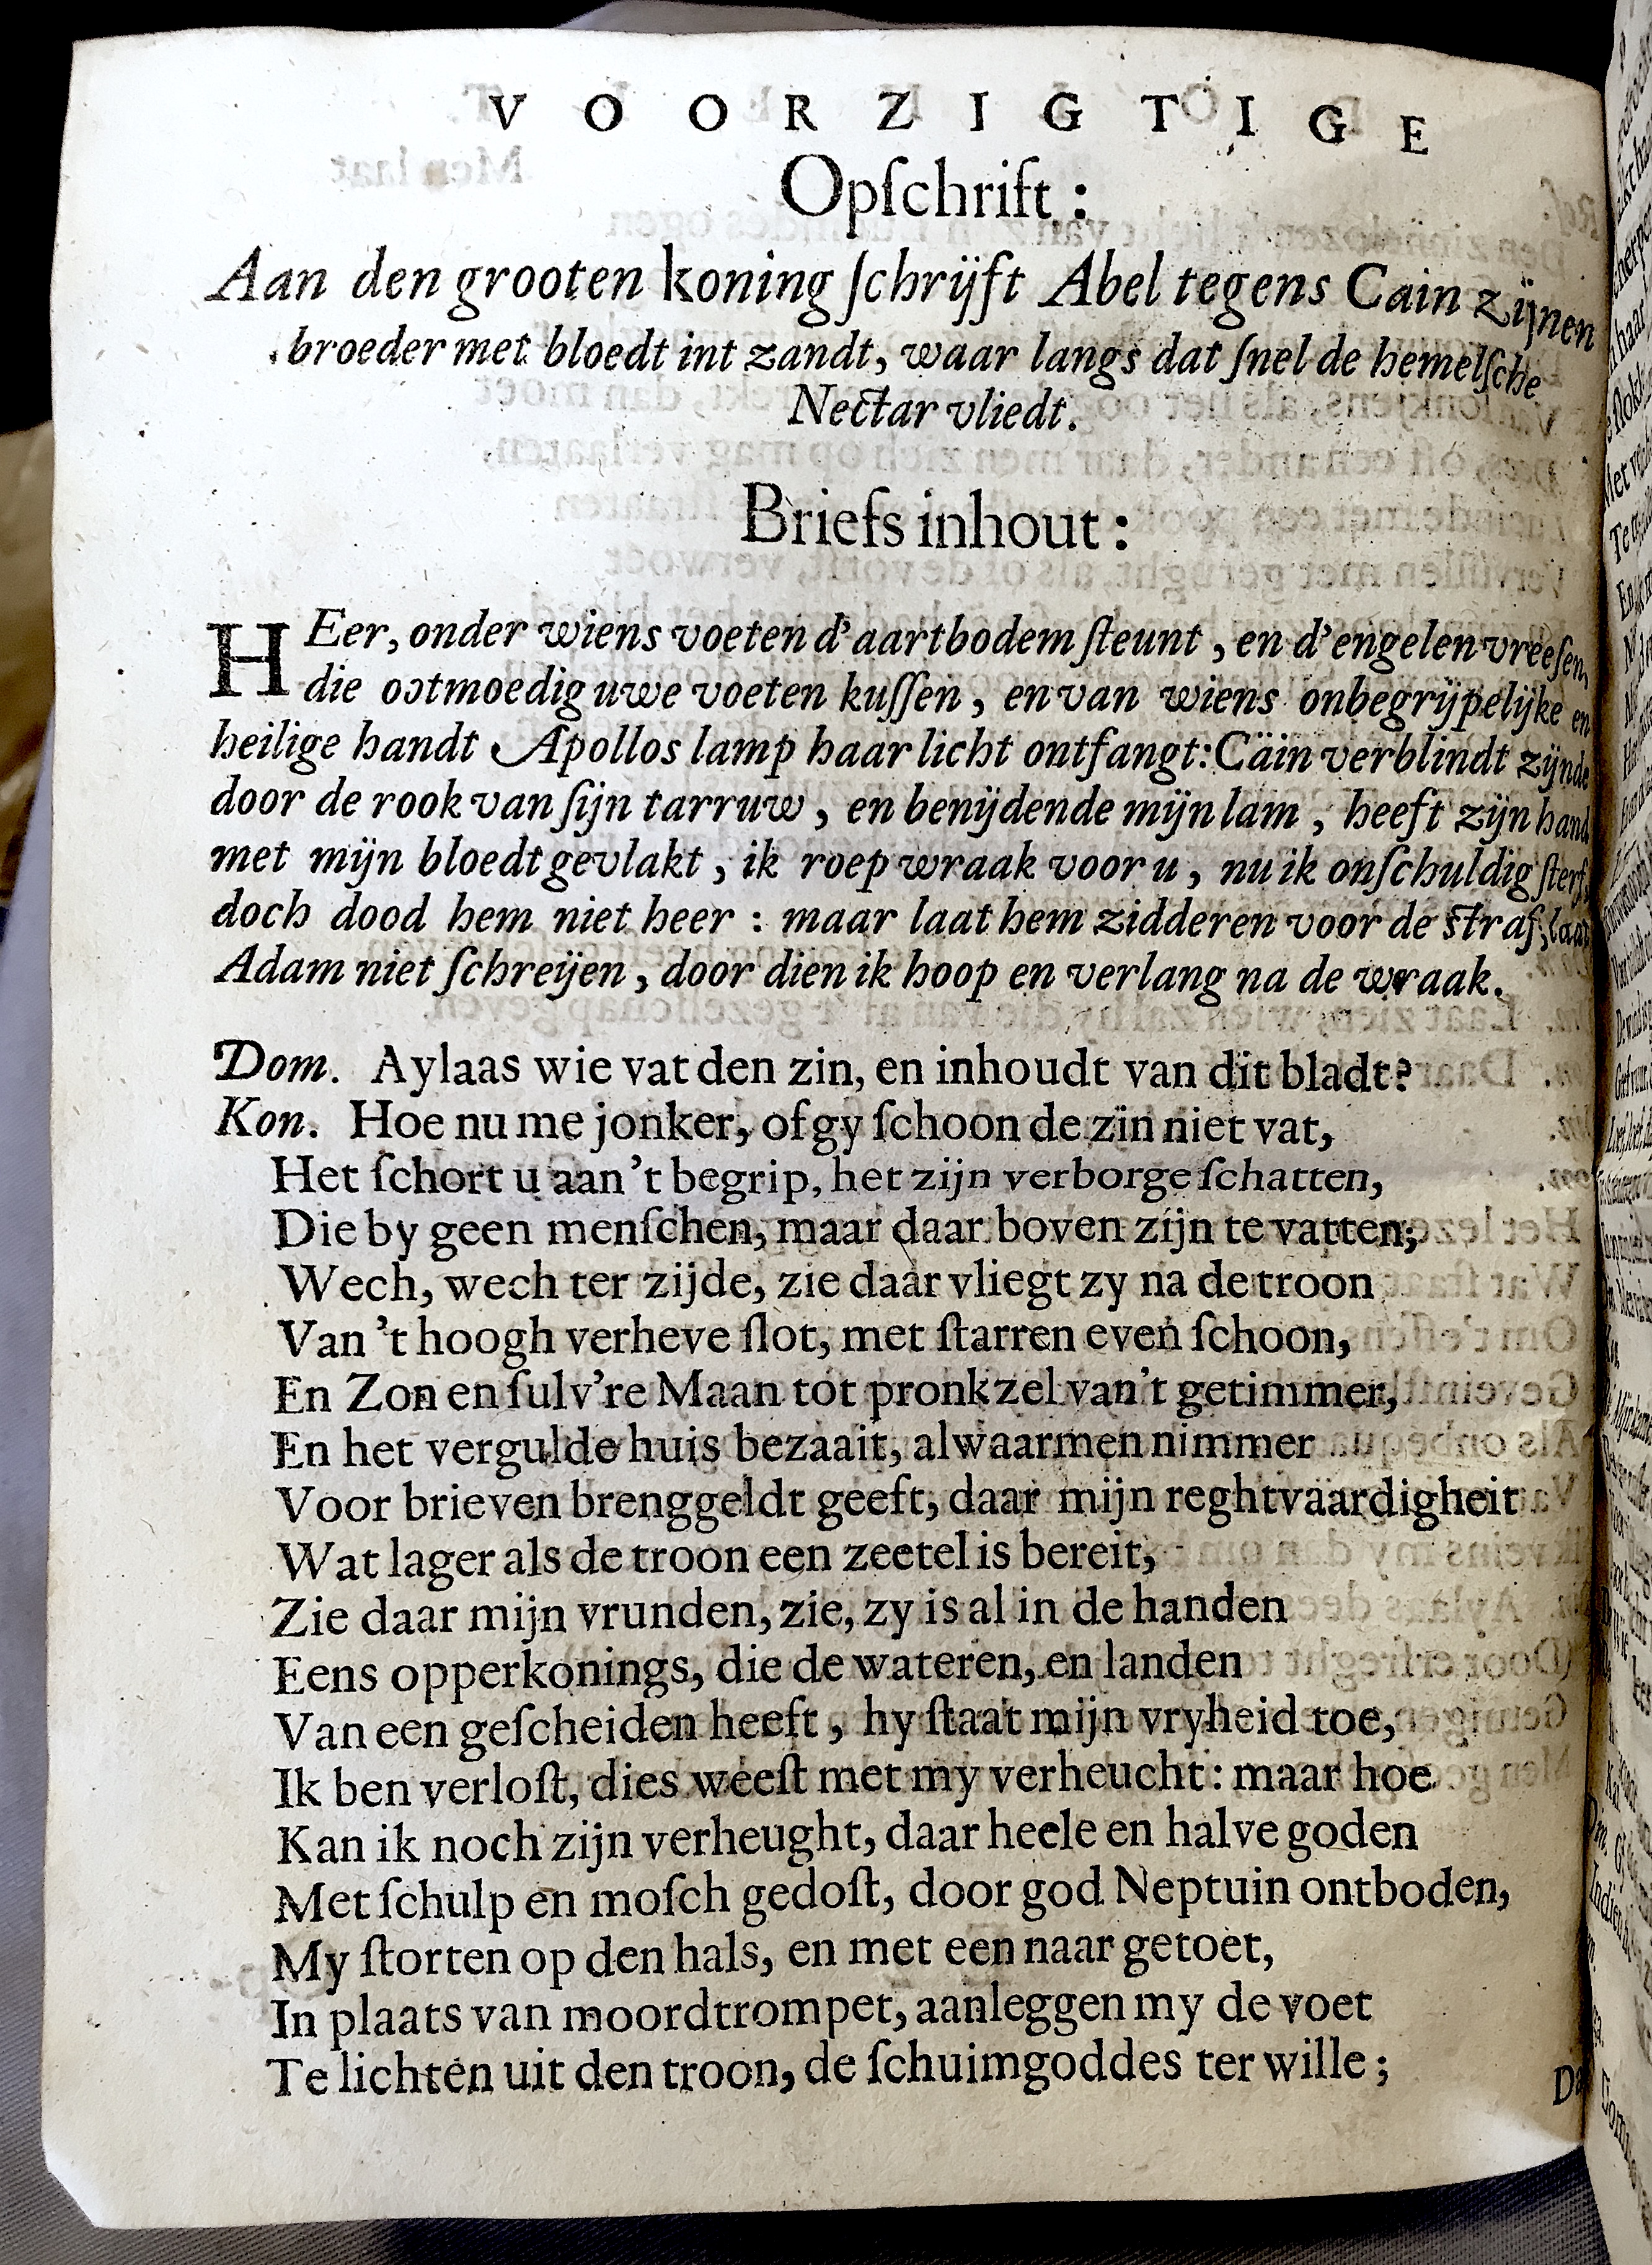 VOORZIGTIGE
Opſchrift:
Aan den grooten koning ſchrijft Abel tegens Cain zijnen
broeder met bloedt int zandt, waar langs dat ſnel de hemelſche
Nectar vliedt.
Briefs inhout:
HEer, onder wiens voeten d'aartbodem ſteunt, en d'engelen vreeſen,
die ootmoedig uwe voeten kuſſen, en van wiens onbegrijpelijke en
heilige handt Apollos lamp haar licht ontfangt: Cäin verblindt zijnde
door de rook van ſijn tarruw, en benijdende mijn lam, heeft zijn hand
met mijn bloedt gevlakt, ik roep wraak voor u, nu ik onſchuldig ſterf,
doch dood hem niet heer: maar laat hem zidderen voor de ſtraf, laat
Adam niet ſchreijen, door dien ik hoop en verlang na de wraak.
Dom. Aylaas wie vat den zin, en inhoudt van dit bladt?
Kon. Hoe nu me jonker, of gy ſchoon de zin niet vat,
Het ſchort u aan 't begrip, het zijn verborge ſchatten,
Die by geen menſchen, maar daar boven zijn te vatten;
Wech, wech ter zijde, zie daar vliegt zy na de troon
Van 't hoogh verheve ſlot, met ſtarren even ſchoon,
En Zon en ſulv're Maan tot pronkzel van't getimmer,
En het vergulde huis bezaait, alwaar men nimmer
Voor brieven brenggeldt geeft, daar mijn reghtvaardigheit
Wat lager als de troon een zeetel is bereit,
Zie daar mijn vrunden, zie, zy is al in de handen
Eens opperkonings, die de wateren, en landen
Van een geſcheiden heeft, hy ſtaat mijn vryheid toe,
Ik ben verloſt, dies weeſt met my verheucht: maar hoe
Kan ik noch zijn verheught, daar heele en halve goden
Met ſchulp en moſch gedoſt, door god Neptuin ontboden,
My ſtorten op den hals, en met een naar getoet,
In plaats van moordtrompet, aanleggen my de voet
Te lichten uit den troon, de ſchuimgoddes ter wille;